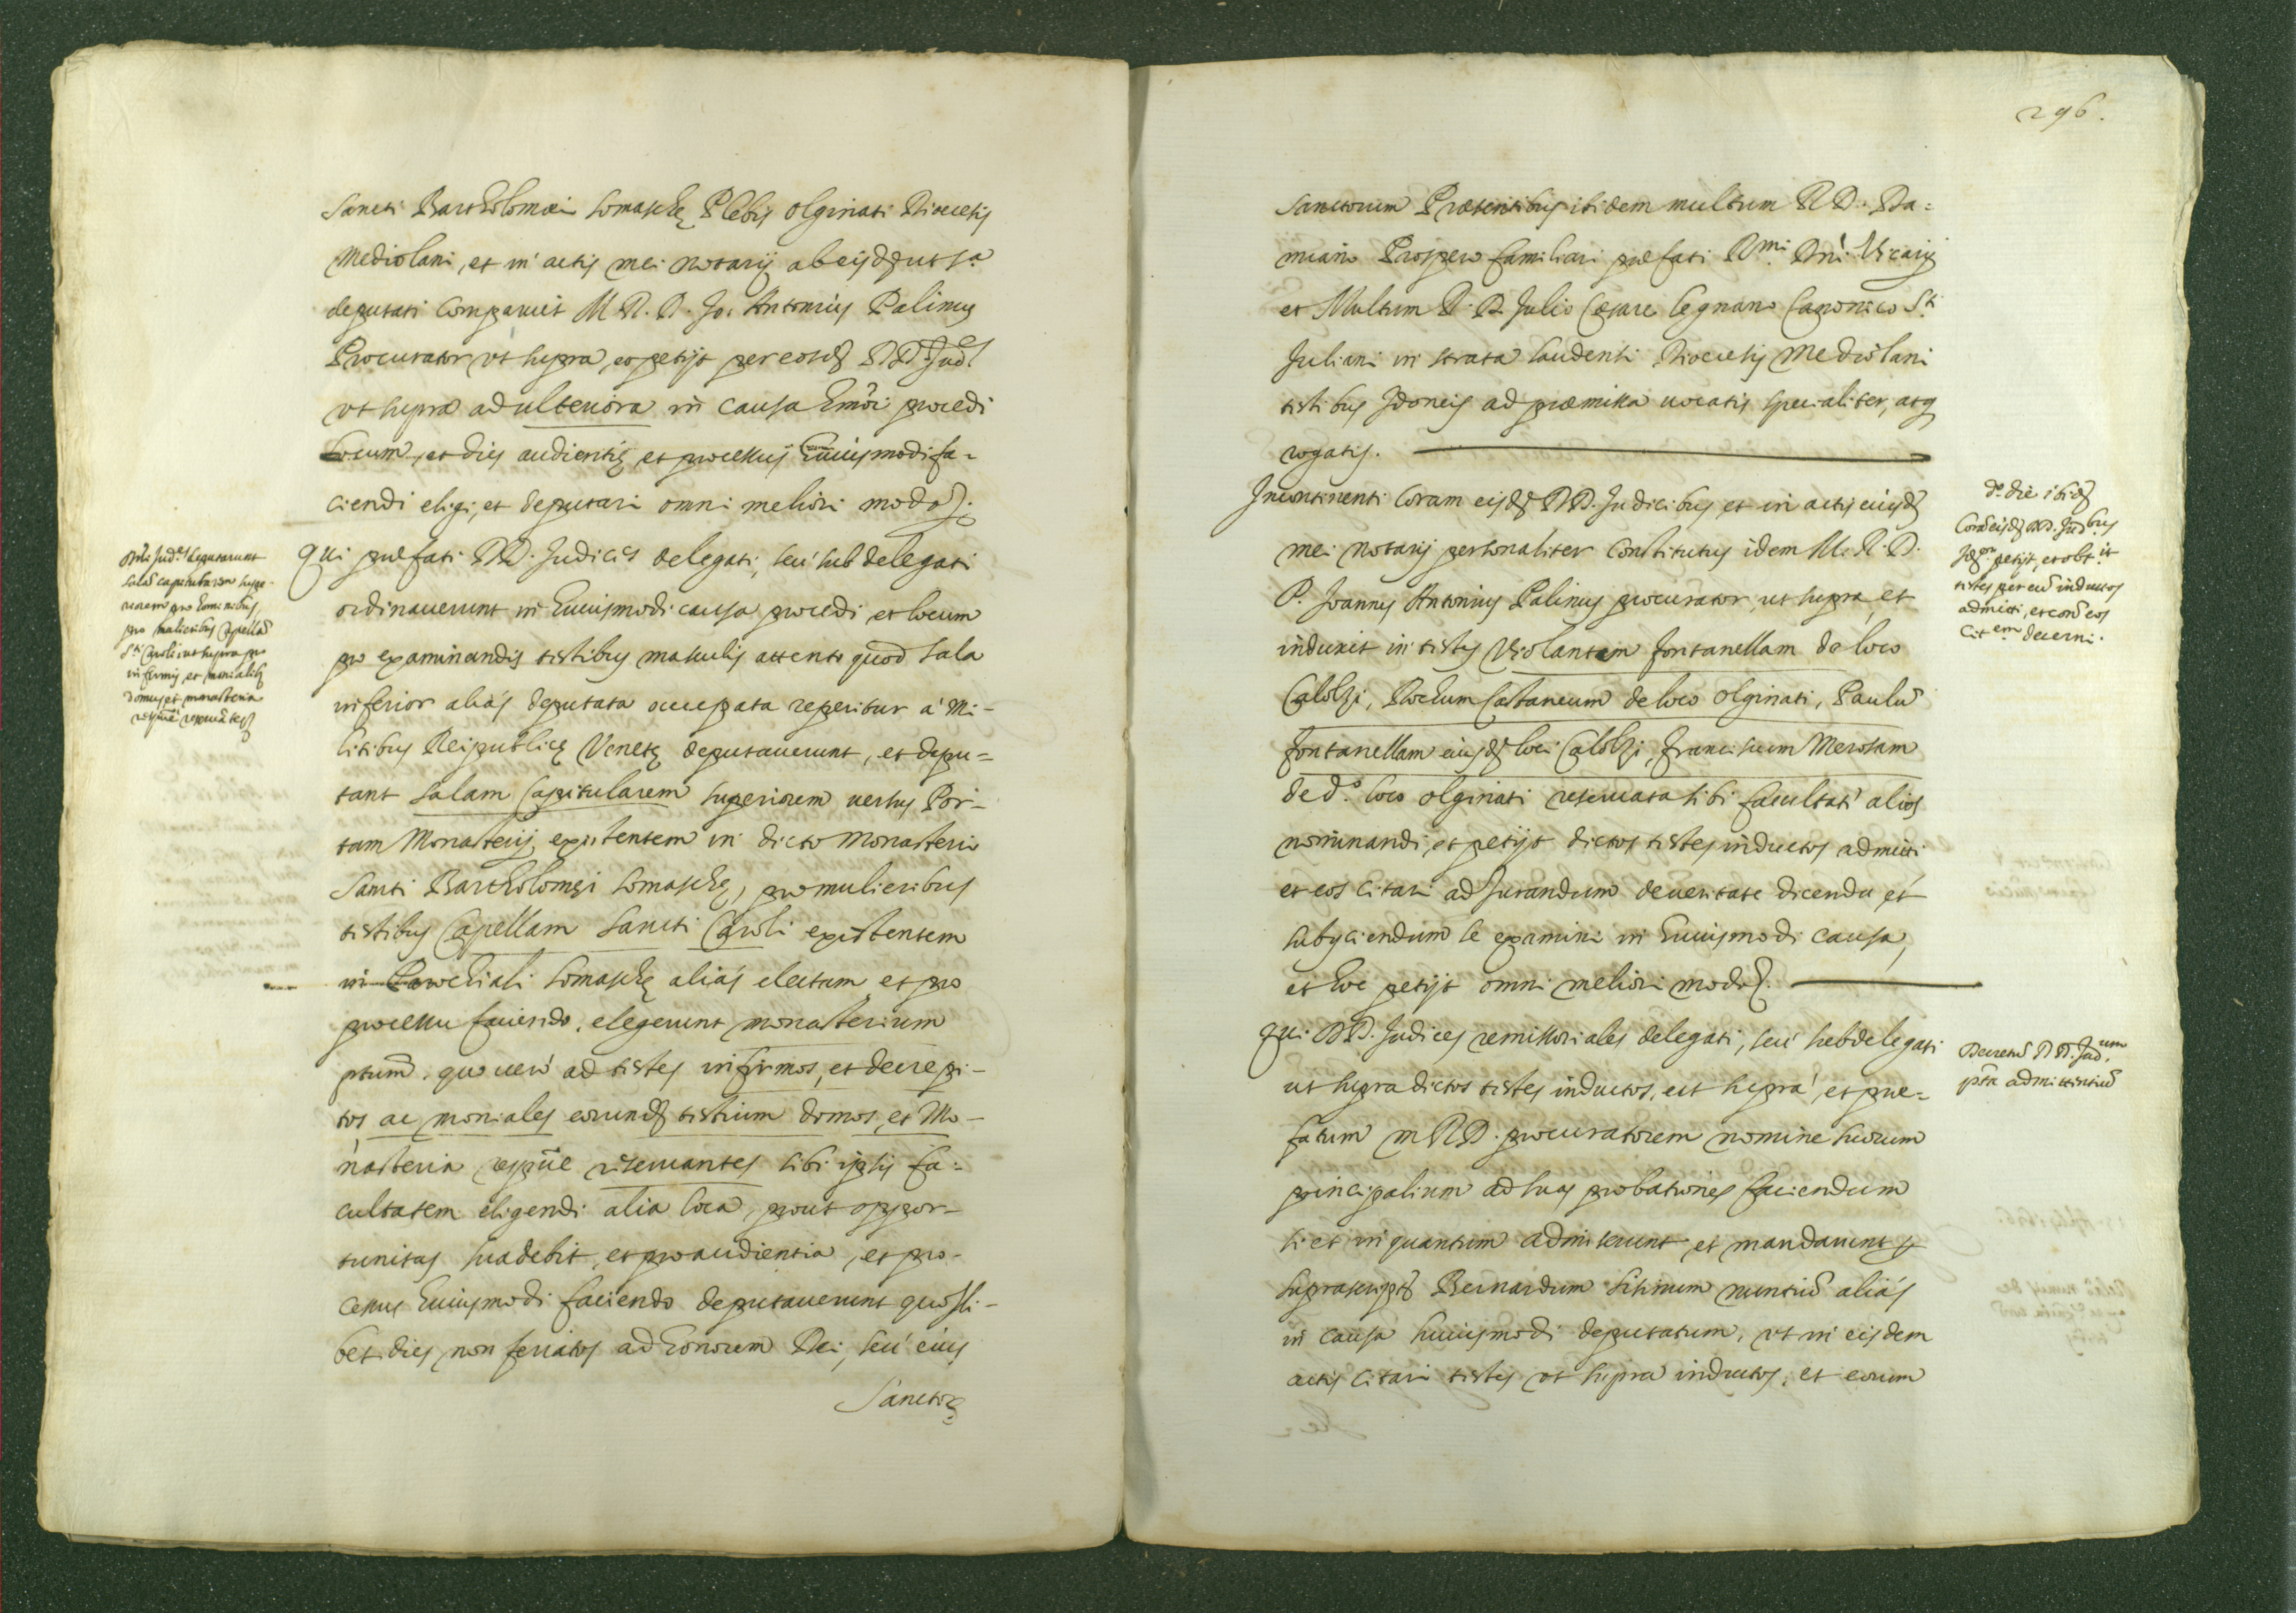 Sancti Bartholomæi Somaschę Plebis Olginati Diocecis
Mediolani, et in actis mei Notarij ab eisdẽ ut sᵃ
deputati Comparuit M. R. D. Jo: Antonius Palinus
Procurator vt supra, et petijt per eosdẽ DD. Judˢ
vt supra ad ulteriora in causa hmõi procedi
locum, et dies audientię et processus huiusmodi fa=
ciendi eligi, et deputari omni meliori modo
Qui præfati DD. Judices delegati, seu subdelegati
ordinauerunt in huiusmodi causa procedi et locum
pro examinandis testibus masculis attento quod sala
inferior aliàs deputata occupata reperitur à Mi-
litibus Reipublicę Venetę deputauerunt, et depu=
tant salam Capitularem superiorem uersus Por-
tam Monasterij existentem in dicto Monasterio
Sancti Bartholomęi Somaschę, pro mulieribus
testibus Capellam Sancti Caroli existentem
in Parochiali Somaschę aliàs electam et pro
processu faciendo, elegerunt monasterium
ptum̃. quo uerò ad testes infirmos, et decrepi-
tos ac moniales eorundẽ testium domos, et Mo-
nasteria respue reseruantes sibi ipsis fa=
cultatem eligendi alia loca, prout oppor-
tunitas suadebit, et pro audientia, et pro-
cessus huiusmodi faciendo deputauerunt quosli-
bet dies non feriatos ad honorem Dei, seu eius
Sanctoꝝ
Judˢ deputarunt
salã capitularem supe-
riorem pro hominibus,
pro mulieribus Capellã
Sᵗⁱ Caroli ut supra pro
infirmis, et monialibꝫ
domus et monasteria
296.
Sanctorum Præsentibus ibidem multum R. D. Da=
miano Prospero familiari præfati Rᵐⁱ Dñi Vicarij
et Multum R. D. Julio Cæsare Legnano Canonico Sᵗⁱ
Juliani in strata Laudensi Diocecis Mediolani
testibus Idoneis ad præmissa uocatis specialiter, atq
rogatis.
Incontinenti Coram eisdẽ DD. Judicibus et in actis eiusdẽ
mei Notarij personaliter Constitutus idem M. R. D.
P. Joannes Antonius Palinus procurator, ut supra, et
induxit in testes Violantem Fontanellam de loco
Calolzi, Rochum Castaneum de loco Olginati, Paulũ
Fontanellam eiusdẽ loci Calolzi, Franciscum Merosam
de dᵒ. loco Olginati reseruata sibi facultatè alios
nominandi, et petijt dictos testes inductos admitti
et eos citari ad Jurandum de ueritate dicenda et
subyciendum se examini in huiusmodi causa,
et hoc petijt omni meliori modo.
Qui DD. Judices remissoriales delegati, seu subdelegati
ut supra dictos testes inductos, ut supra, et præ=
fatum M R D. procuratorem nomine suorum
principalium ad suas probationes faciendum
si et in quantum admiserunt et mandauerunt p
suprascriptũ Bernardum Sitinum nuntiũ aliàs
in causa huiusmodi deputatum, ut in eisdem
actis citari testes ut supra inductos, et eorum
dᵒ die ibidẽ
Corã eisdẽ DD. Judᵇᵘˢ
petijt, et obtᵘⁱᵗ
testes per eũ inductos
admitti, et corã eos
Citᵉᵐ decerni.
Decretũ DD. Judᵘᵐ
pᵗᵃ admittentiũ